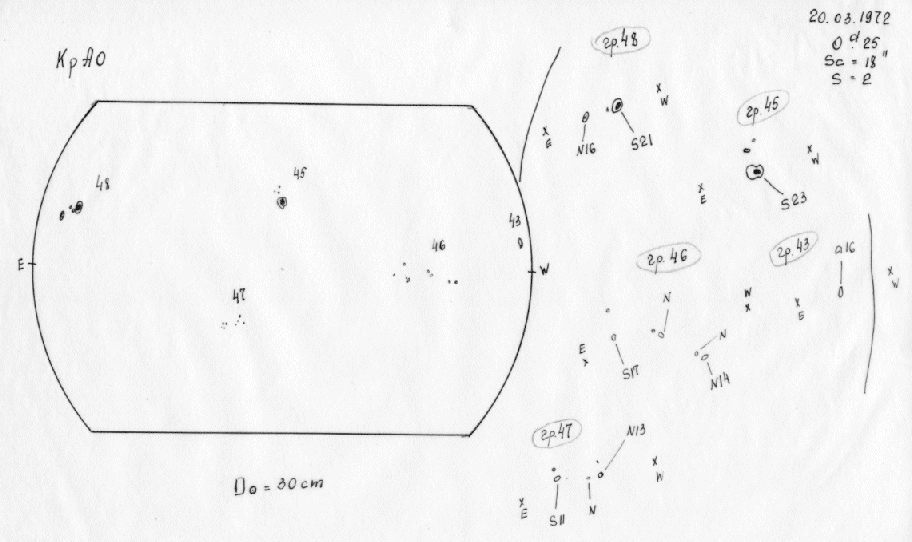 20.03.1972
0.ᵈ25
Sa = 18"
S = 2
КрАО
48
45
43
46
47
E
W
D⊙ = 30 cm
гр.48
E
N16
S21
W
гр.45
E
S23
W
гр.46
E
S17
N
N
N14
W
гр.43
E
a16
W
гр.47
E
S11
N
N13
W